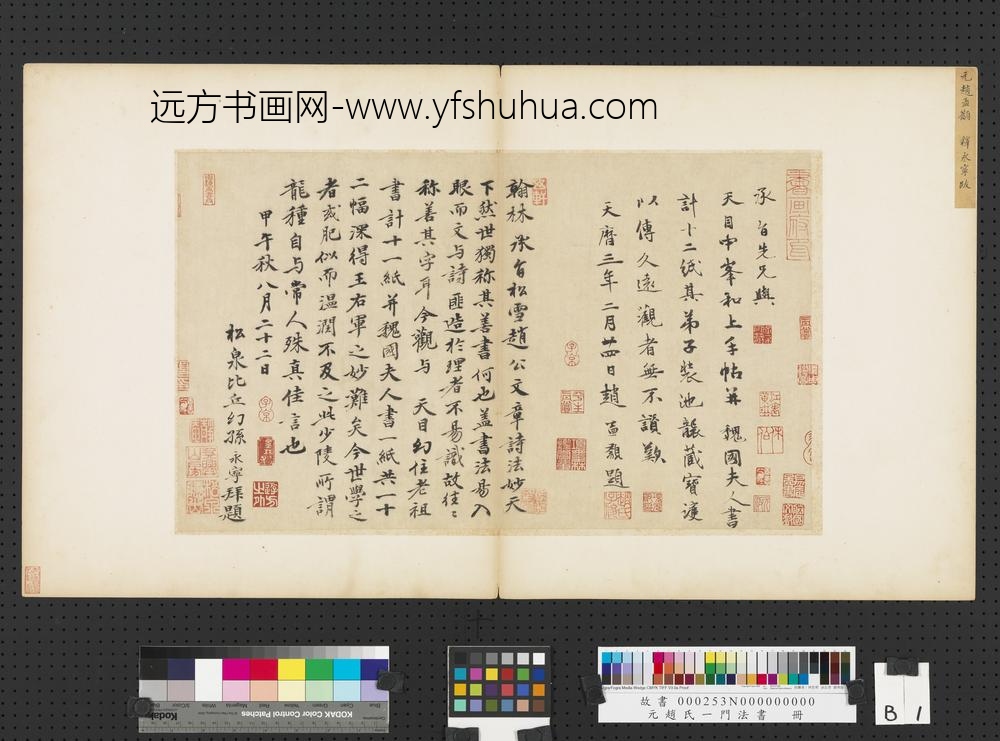 远方书画网-www.yfshuhua.com
元趙孟頫 釋永寧跋
承旨先兄與
天目中峯和上手帖并 魏國夫人書
計十二紙其弟子裝池襲藏寶護
以傳久遠觀者無不讚歎
天曆三年二月廿四日趙 孟頫題
翰林承旨松雪趙公文章詩法妙天
下然世獨称其善書何也盖書法易入
眼而文与詩匪造於理者不易識故往〻
称善其字耳今觀与 天目幻住老祖
書計十一紙并魏國夫人書一紙共一十
二幅深得王右軍之妙難矣今世學之
者或肥似而温潤不及之此少陵所謂
龍種自与常人殊真佳言也
甲午秋八月二十二日
松泉比丘幻孫永寧拜題
KODAK Color Control Patches
故書 000253N000000000
元趙氏一門法書 冊
B 1